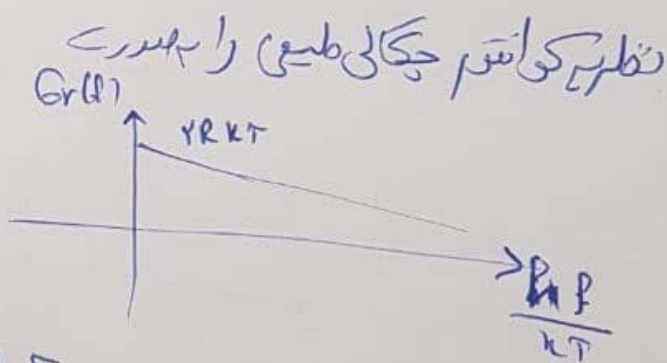 نظریه کوانتوم چگالی طیفی را به صورت
Gv(f)
۲RKT
h f
KT